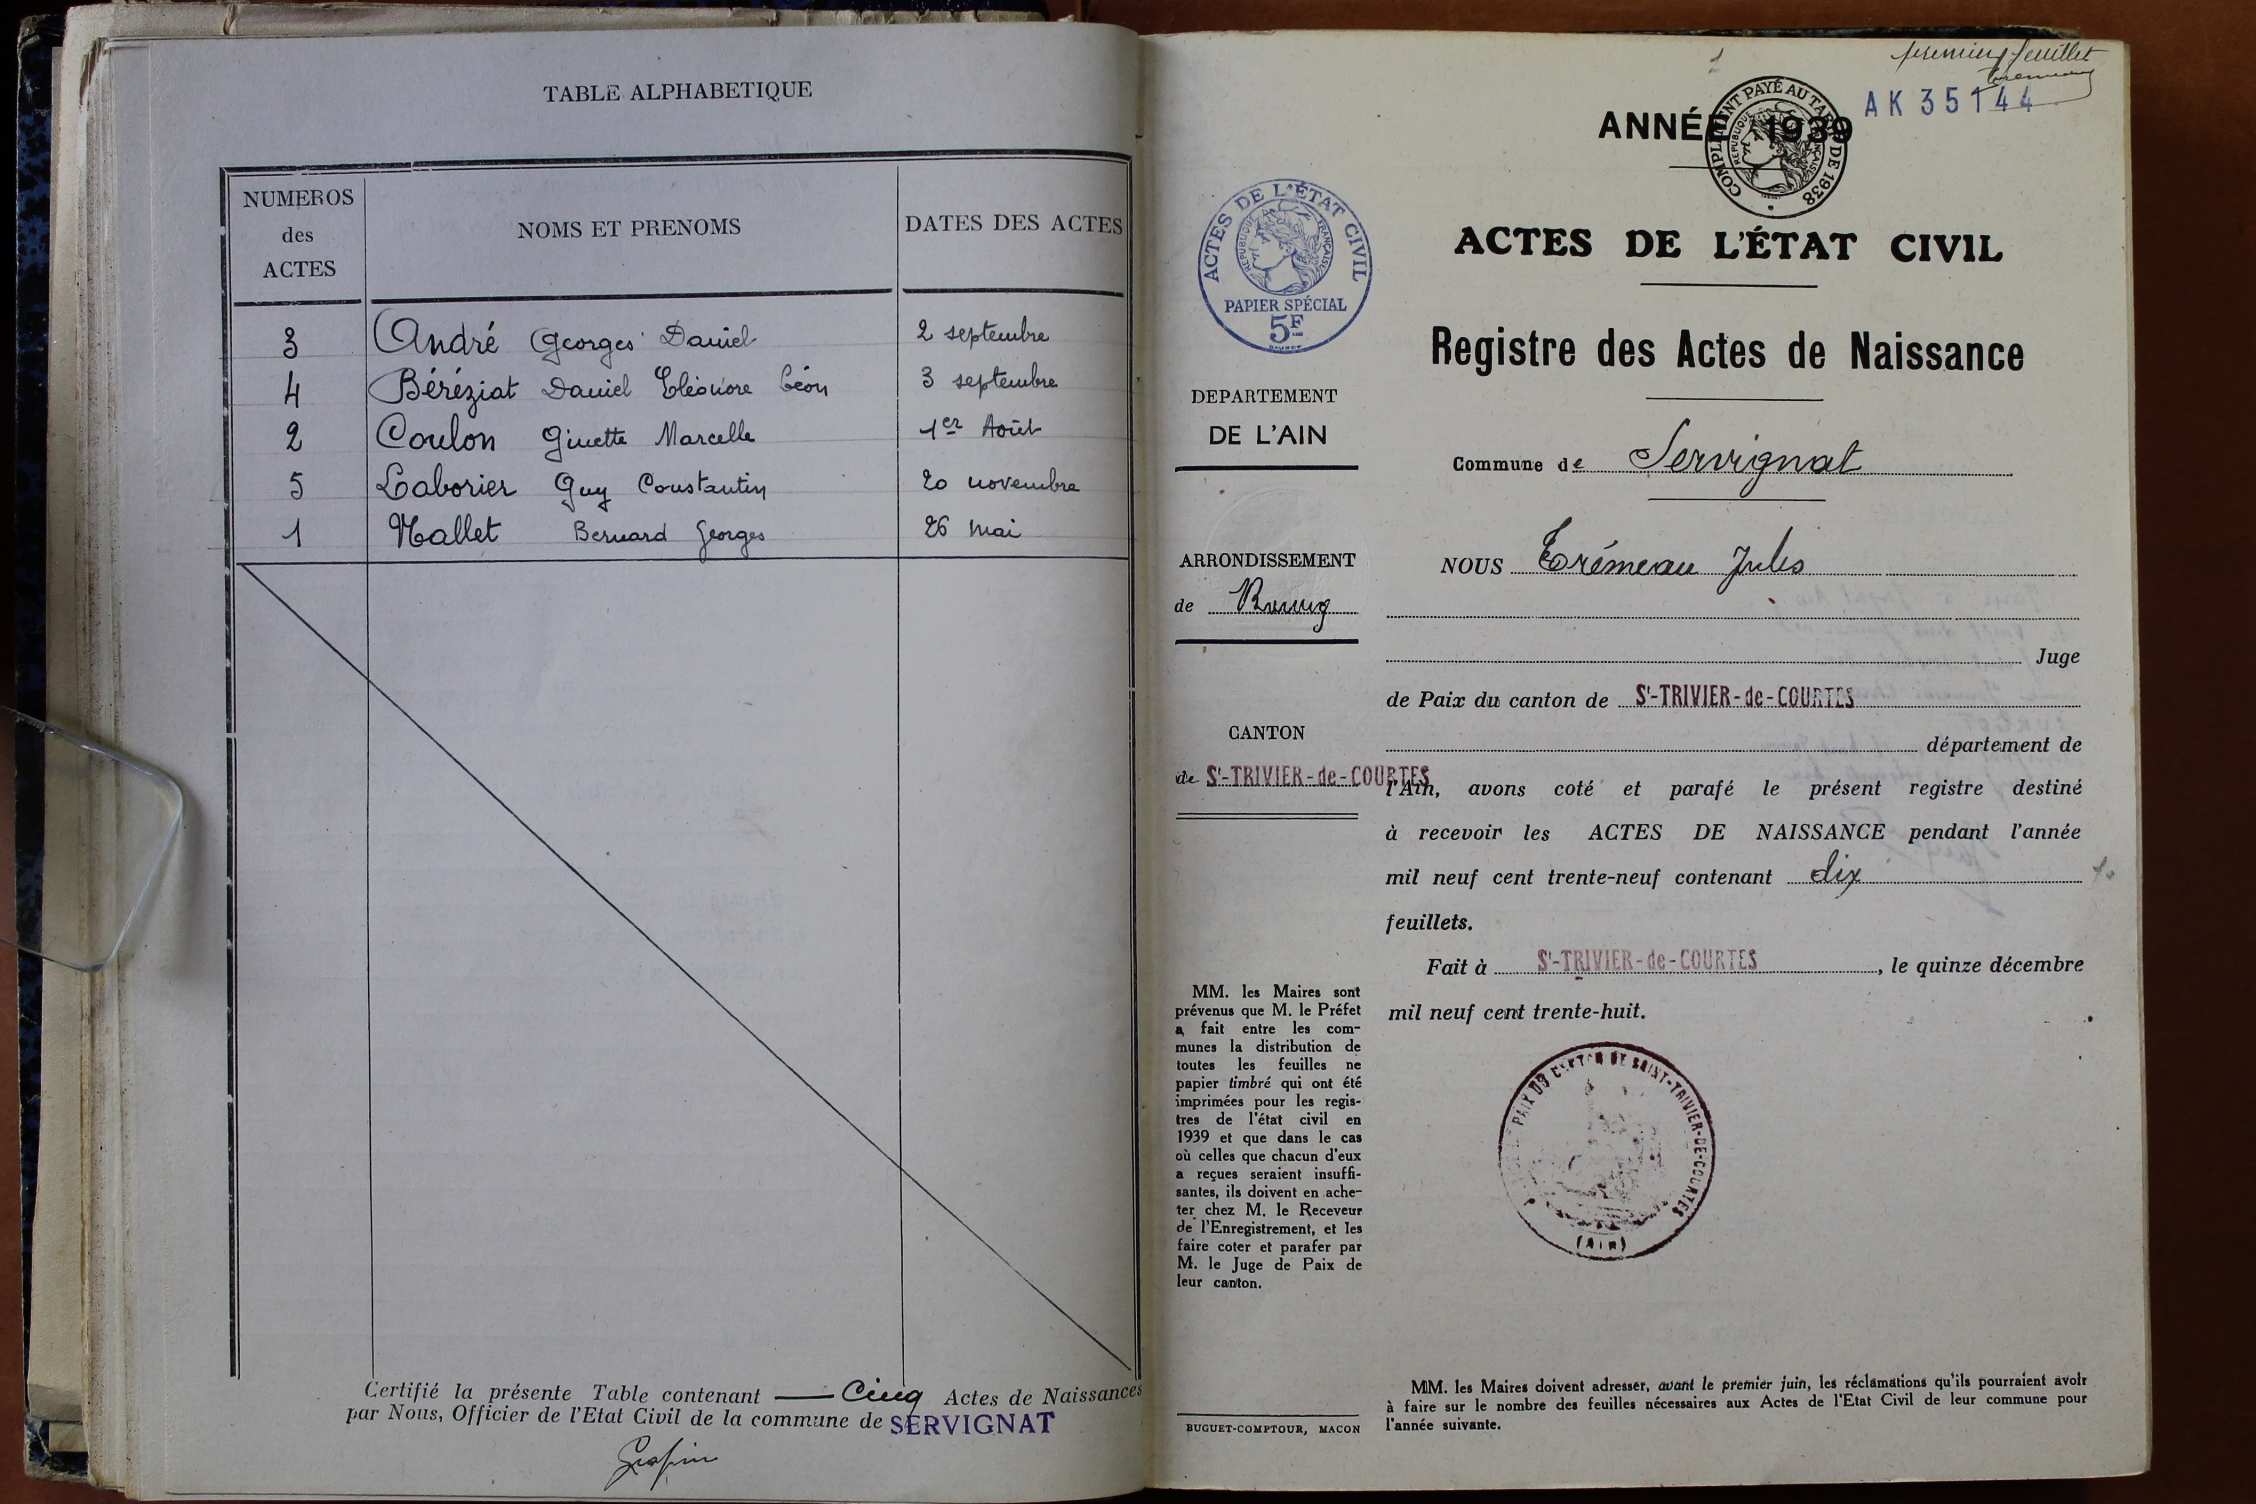 TABLE ALPHABETIQUE
NUMEROS
des
ACTES
NOMS ET PRENOMS
DATES DES ACTES
3 André Georges Daniel 2 septembre
4 Béréziat Daniel Eléonore Léon 3 septembre
2 Coulon Ginette Marcelle 1er Août
5 Laborier Guy Constantin 20 novembre
1 Mallet Bernard Georges 26 mai
Certifié la présente Table contenant Cinq Actes de Naissances
par Nous, Officier de l'Etat Civil de la commune de SERVIGNAT
premier feuillet
AK 35144
ANNÉE 1939
COMPLEMENT PAYÉ AU TARIF DE 1938
REPUBLIQUE FRANÇAISE
ACTES DE L'ÉTAT CIVIL
REPUBLIQUE FRANÇAISE
PAPIER SPÉCIAL
5F
DEPARTEMENT
DE L'AIN
ARRONDISSEMENT
de Bourg
CANTON
de St-TRIVIER-de-COURTES
MM. les Maires sont
prévenus que M. le Préfet
a fait entre les com-
munes la distribution de
toutes les feuilles ne
papier timbré qui ont été
imprimées pour les regis-
tres de l'état civil en
1939 et que dans le cas
où celles que chacun d'eux
a reçues seraient insuffi-
santes, ils doivent en ache-
ter chez M. le Receveur
de l'Enregistrement, et les
faire coter et parafer par
M. le Juge de Paix de
leur canton.
BUGUET-COMPTOUR, MACON
ACTES DE L'ÉTAT CIVIL
Registre des Actes de Naissance
Commune de Servignat
NOUS Trémeau Jules
Juge
de Paix du canton de St-TRIVIER-de-COURTES
département de
l'Ain, avons coté et parafé le présent registre destiné
à recevoir les ACTES DE NAISSANCE pendant l'année
mil neuf cent trente-neuf contenant dix
feuillets.
Fait à St-TRIVIER-de-COURTES, le quinze décembre
mil neuf cent trente-huit.
PAIX DU CANTON DE SAINT-TRIVIER-DE-COURTES
(AIN)
MM. les Maires doivent adresser, avant le premier juin, les réclamations qu'ils pourraient avoir
à faire sur le nombre des feuilles nécessaires aux Actes de l'Etat Civil de leur commune pour
l'année suivante.